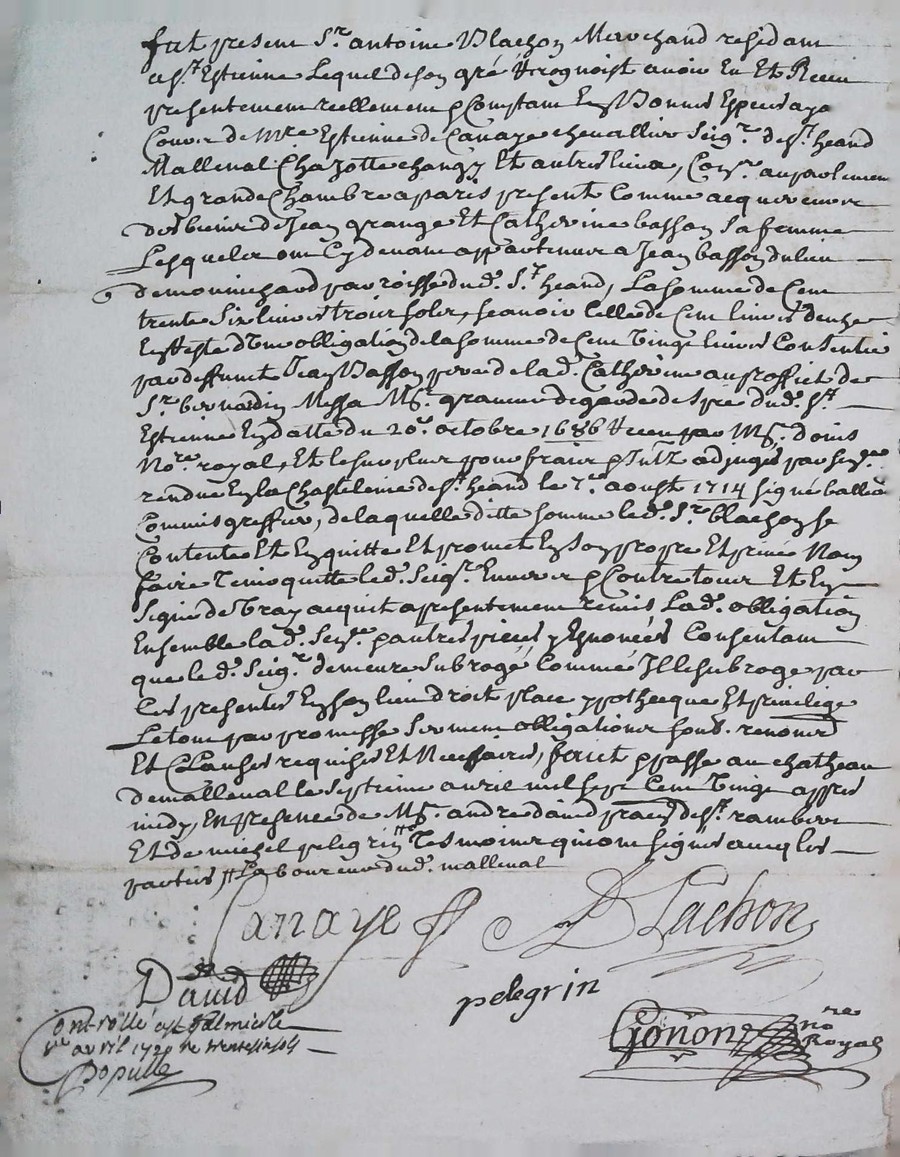 fut present Sr. antoine Blachon Marchand residant
a St. Estienne Lequel de son gré & recognoist avoir Eu Et Receu
presentement reellement & Comptant En Bonnes Especes a ce
Cours de Mre Estienne de Canaye chevallier Seigr. de St. heand
Mallenal Chazotte changy Et autres lieux, Conr. au parlement
Et grande Chambre a paris present Comme acquereur
des biens de Jean grange Et Catherine basson Sa femme
Lesquels ont Cy devant appartenus a Jean basson du lieu
de paroisse dud. St. heand, La somme de Cent
trente Six livres trois sols, scavoir Celle de Cent livres deüe
En Reste d'Une obligation de la somme de Cent Vingt livres Consentie
par deffunct Jean Basson pere de lad. Catherine au proffict de
Sr. bernardin Messa Mr. dud. St.
Estienne En datte du 20e. octobre 1686 & receu par Me. donis
Nore. royal, Et le surplus pour fraix & adjugés par Sence
rendue En la Chastelenie de St. heand le 7e. aoust 1714 signé
Commis greffier, de laquelle ditte somme led. Sr. blachon se
Contente Et En quitte Et promet En Son propre Et privé Nom
faire Tenir quitte led. Seigr. Envers & Contre tous Et En
Signe de Vray acquit a presentement remis Lad. obligation
Ensemble lad. Sence. & autres pieces y Enoncées Consentant
que led. Seigr. demeure Subrogé Comme Il le subroge par
Ces presentes En son lieu droit place ypotheque Et privilege
Le tout par promesse Serment obligations sous. renonce
Et Clauses requises Et Necessaires, faict & passé au chatheau
de mallenal le Septieme avril mil sept Cent Vingt appres
midy, En presence de Me. andre david de St. rambert
Et de michel pelegrin Tesmoins qui ont signés avec les
parties // Laboureur dud. mallenal
Canaye Blachon
David
pelegrin
Controllé a St Galmier le
avril 1720 Re
Gonon nore Royal